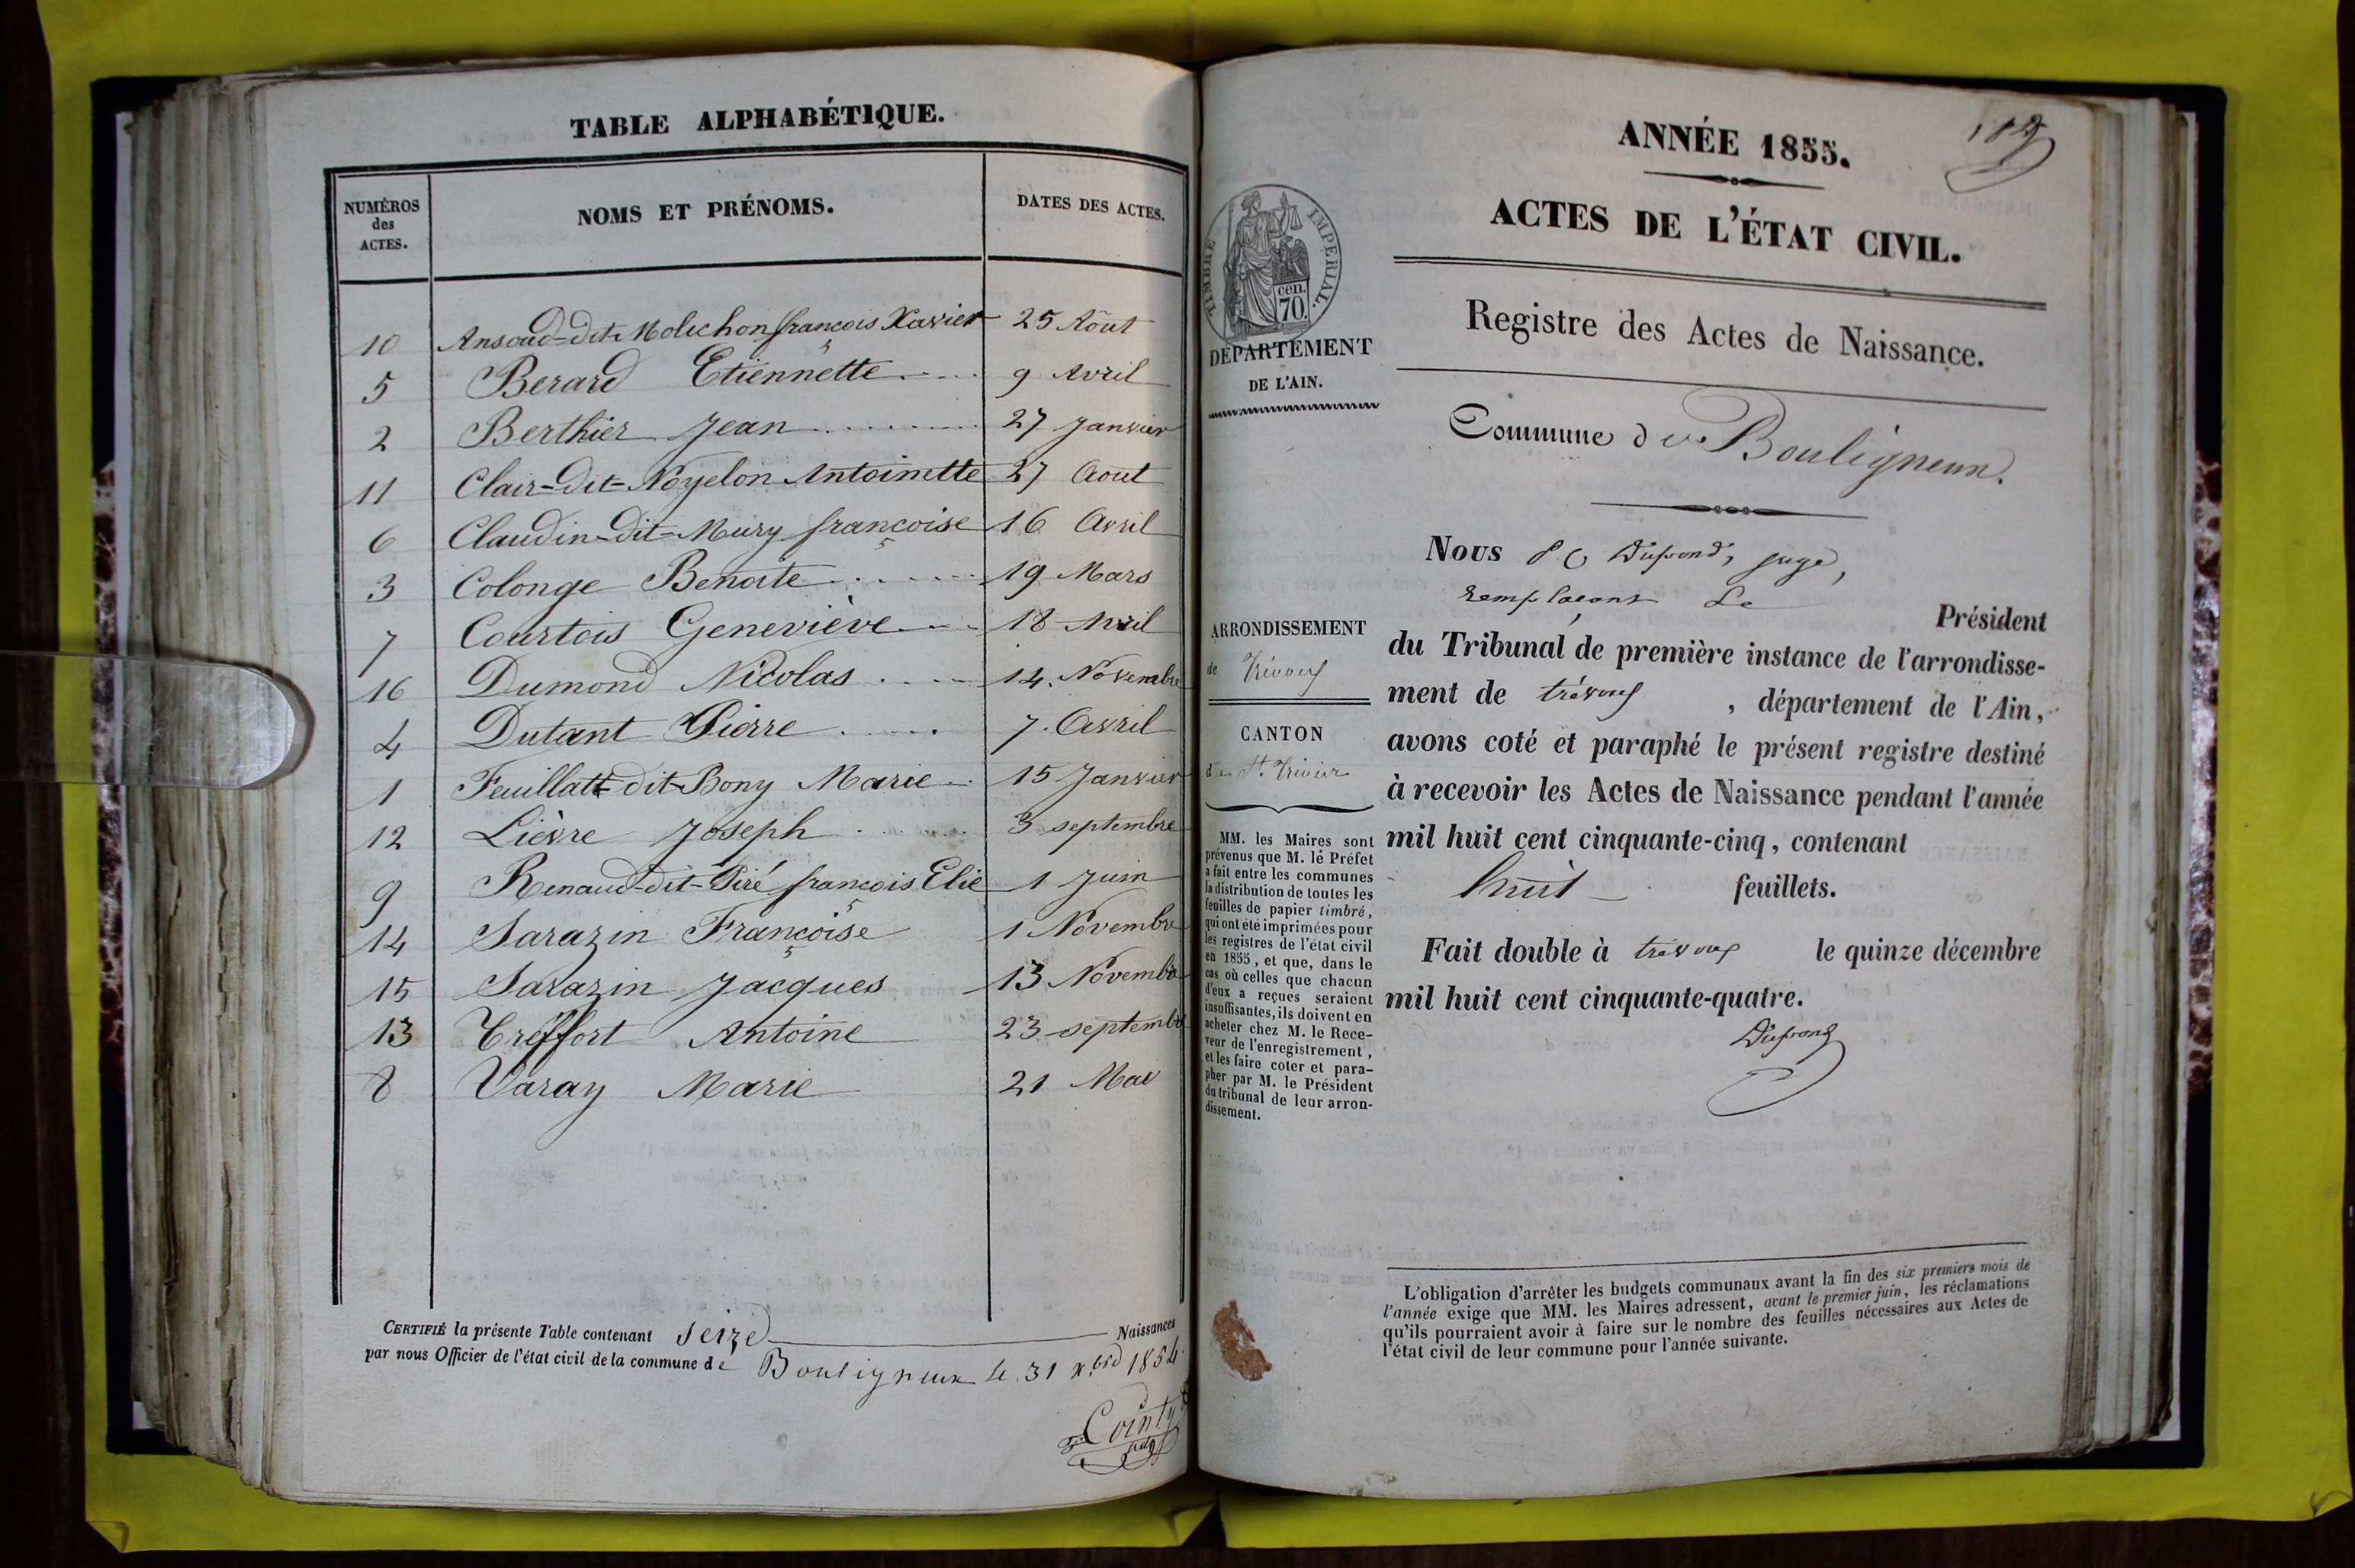 TABLE ALPHABÉTIQUE.
NUMÉROS
des
ACTES.
NOMS ET PRÉNOMS.
DATES DES ACTES.
10 Ansoud-dit-Molichon françois Xavier 25 Aôut
5 Berard Etiennette 9 Avril
2 Berthier Jean 27 Janvier
11 Clair-dit-Noyelon Antoinette 27 Aout
6 Claudin-dit-Mury françoise 16 Avril
3 Colonge Benoite 19 Mars
7 Courtois Geneviève 18 Avril
16 Dumond Nicolas 14. Novembre
4 Dutant Pierre 7. Avril
1 Feuillatt-dit-Bony Marie 15 Janvier
12 Lièvre Joseph 3 septembre
9 Renaud-dit-Piré françois Elie 1 Juin
14 Sarazin Françoise 1 Novembre
15 Sarazin Jacques 13 Novembre
13 Treffort Antoine 23 septembre
8 Varay Marie 21 Mai
CERTIFIÉ la présente Table contenant seize Naissances
par nous Officier de l'état civil de la commune de Bouligneux le 31 Xbre 1854
Cointy
adj
ANNÉE 1855.
ACTES DE L'ÉTAT CIVIL.
TIMBRE IMPÉRIAL.
cen.
70.
DÉPARTEMENT
DE L'AIN.
Registre des Actes de Naissance.
Commune de Bouligneux.
Nous Dupond, juge,
remplaçant Le Président
ARRONDISSEMENT
de Trévoux
CANTON
de St. Trivier
MM. les Maires sont
prévenus que M. le Préfet
a fait entre les communes
la distribution de toutes les
feuilles de papier timbré,
qui ont été imprimées pour
les registres de l'état civil
en 1855, et que, dans le
cas où celles que chacun
d'eux a reçues seraient
insuffisantes, ils doivent en
acheter chez M. le Rece-
veur de l'enregistrement,
et les faire coter et para-
pher par M. le Président
du tribunal de leur arron-
dissement.
du Tribunal de première instance de l'arrondisse-
ment de trévoux, département de l'Ain,
avons coté et paraphé le présent registre destiné
à recevoir les Actes de Naissance pendant l'année
mil huit cent cinquante-cinq, contenant
huit feuillets.
Fait double à trévoux le quinze décembre
mil huit cent cinquante-quatre.
Dupond
L'obligation d'arrêter les budgets communaux avant la fin des six premiers mois de
l'année exige que MM. les Maires adressent, avant le premier juin, les réclamations
qu'ils pourraient avoir à faire sur le nombre des feuilles nécessaires aux Actes de
l'état civil de leur commune pour l'année suivante.